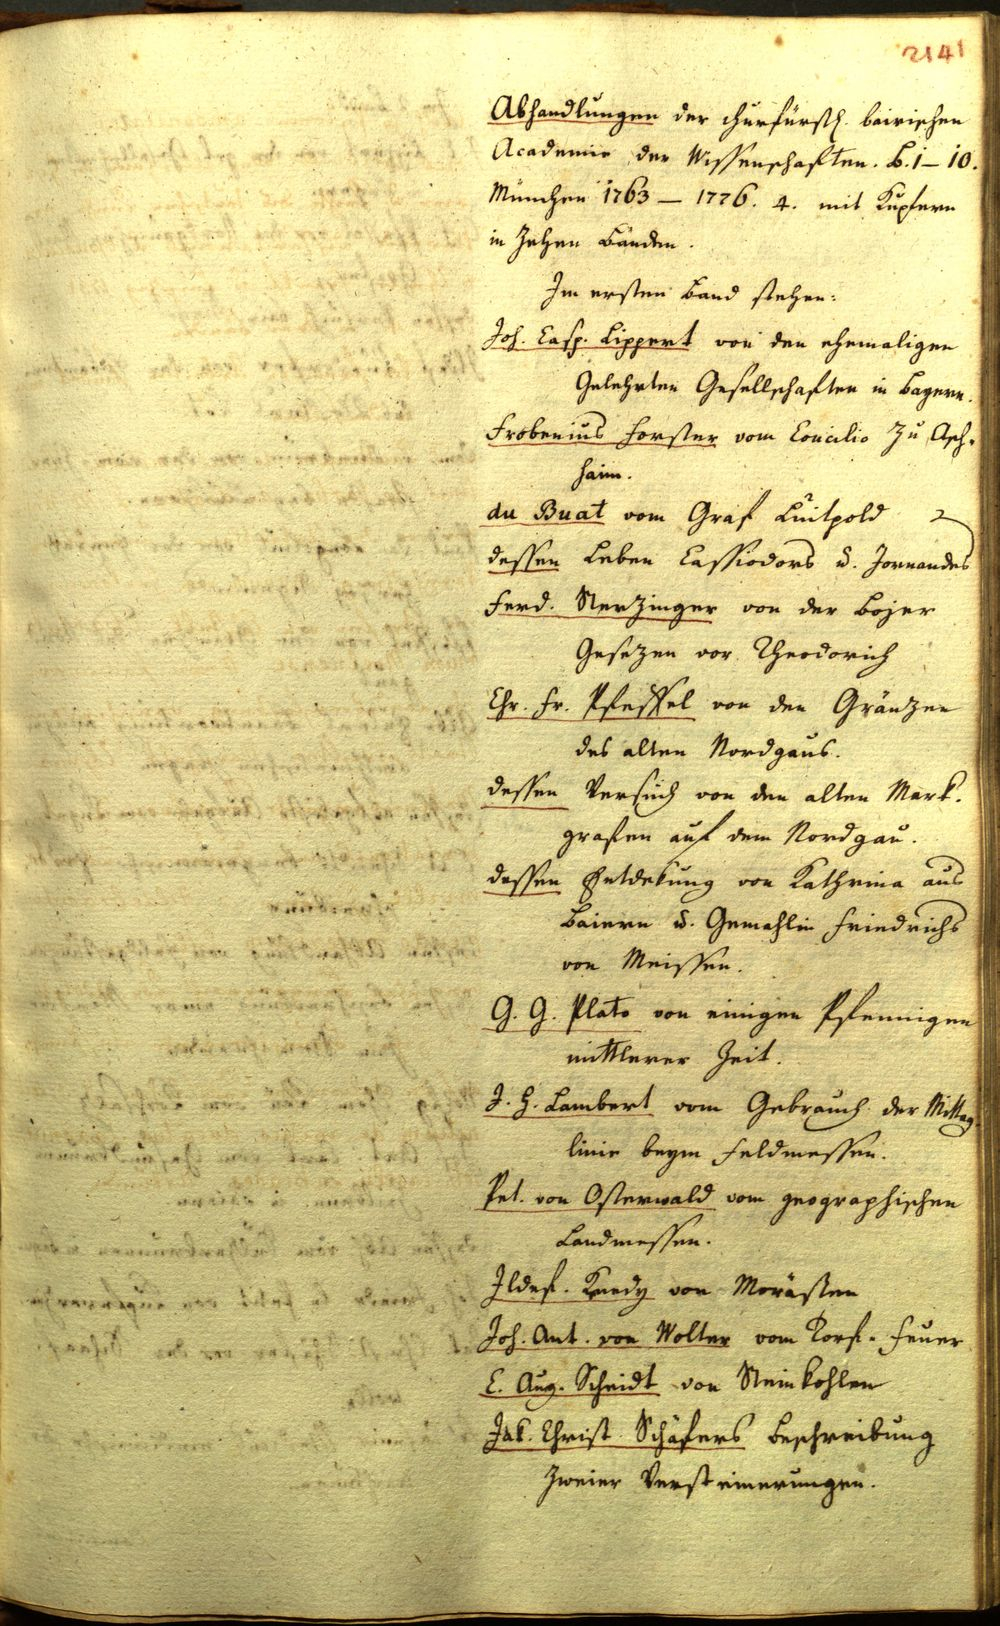 2141
Abhandlungen der churfürstl. bairischen
Academie der Wissenschaften. B. 1 – 10.
München 1763 – 1776. 4. mit Kupfern
in Zehen Bänden.
Im ersten Band stehen:
Joh. Casp. Lippert von den ehemaligen
Gelehrten Gesellschaften in Bayern.
Frobenius Forster vom Concilio Zu Asch-
haim.
du Buat vom Graf Luitpold
dessen Leben Cassiodors u. Jornandes
Ferd. Sterzinger von der Bojer
Gesezen vor Theodorich
Chr. Fr. Pfeffel von den Gränzen
des alten Nordgaus.
dessen Versuch von den alten Mark-
grafen auf dem Nordgau.
dessen Entdekung von Kathrina aus
Baiern u. Gemahlin Friedrichs
von Meissen.
G. G. Plato von einigen Pfennigen
mittlerer Zeit.
J. H. Lambert vom Gebrauch der Mittag-
linie beym Feldmessen.
Pet. von Osterwald vom geographischen
Landmessen.
Ildef. Kenedy von Morästen
Joh. Ant. von Wolter vom Torf-Feuer
C. Aug. Scheidt von Steinkohlen
Jak. Christ. Schäfers Beschreibung
zweier Versteinerungen.